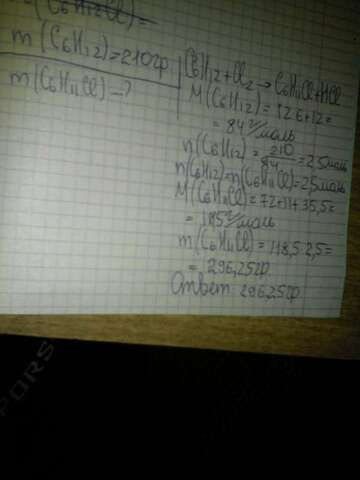 (C6H12Cl)=
m(C6H12)=210гр
m(C6H11Cl)-?
C6H12+Cl2→C6H11Cl+HCl
M(C6H12)=12·6+12=
=84г/моль
n(C6H12)=210/84=2,5моль
n(C6H12)=n(C6H11Cl)=2,5моль
M(C6H11Cl)=72+11+35,5=
=118,5г/моль
m(C6H11Cl)=118,5·2,5=
=296,25гр.
Ответ 296,25гр
PORS